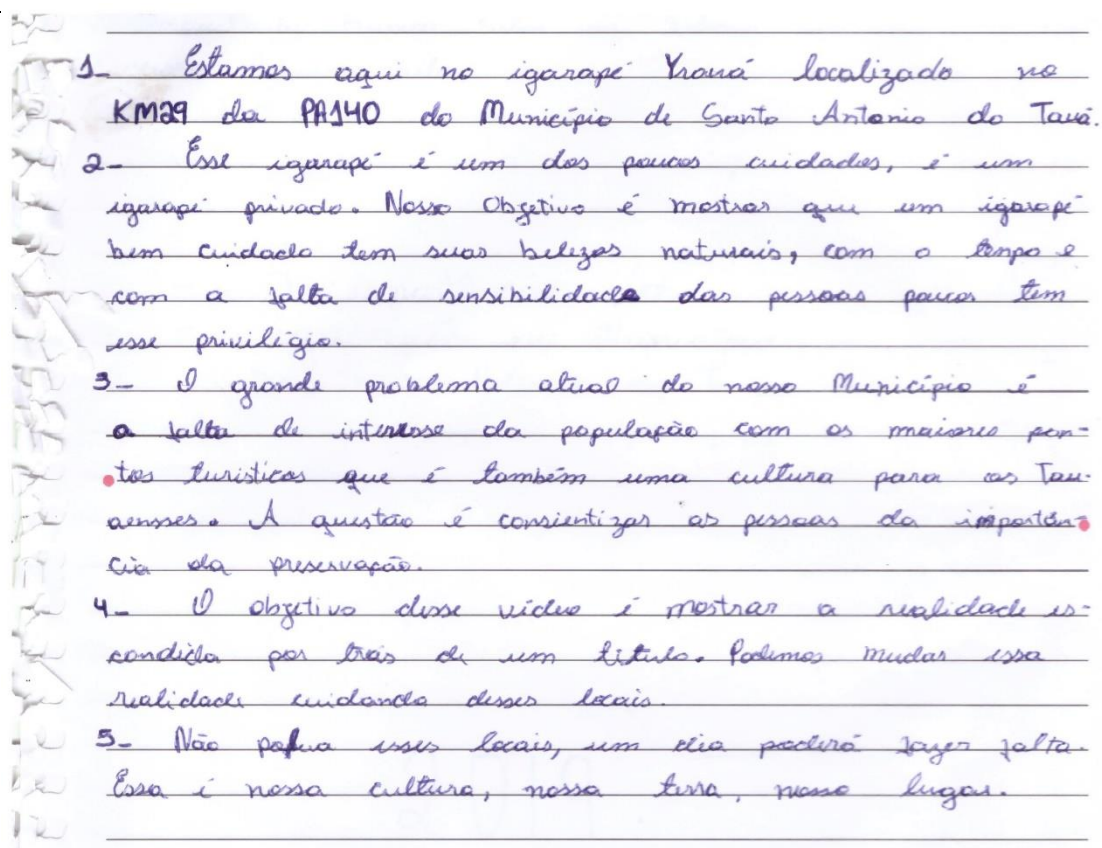 1- Estamos aqui no igarapé Yrauá localizado no
KM29 da PA140 do Município de Santo Antonio do Tauá.
2- Esse igarapé é um dos poucos cuidados, é um
igarapé privado. Nosso Obgetivo é mostrar que um igarapé
bem cuidado tem suas belezas naturais, com o tenpo e
com a falta de sensibilidade das pessoas poucos tem
esse privilégio.
3- O grande problema atual do nosso Município é
a falta de interesse da população com os maiores pon-
tos turísticos que é também uma cultura para os Tau-
aenses. A questão é consientizar as pessoas da importân-
cia da preservação.
4- O obgetivo desse vídeo é mostrar a realidade es-
condida por trás de um título. Podemos mudar essa
realidade cuidando desses locais.
5- Não polua esses locais, um dia poderá fazer falta.
Essa é nossa cultura, nossa terra, nosso lugar.